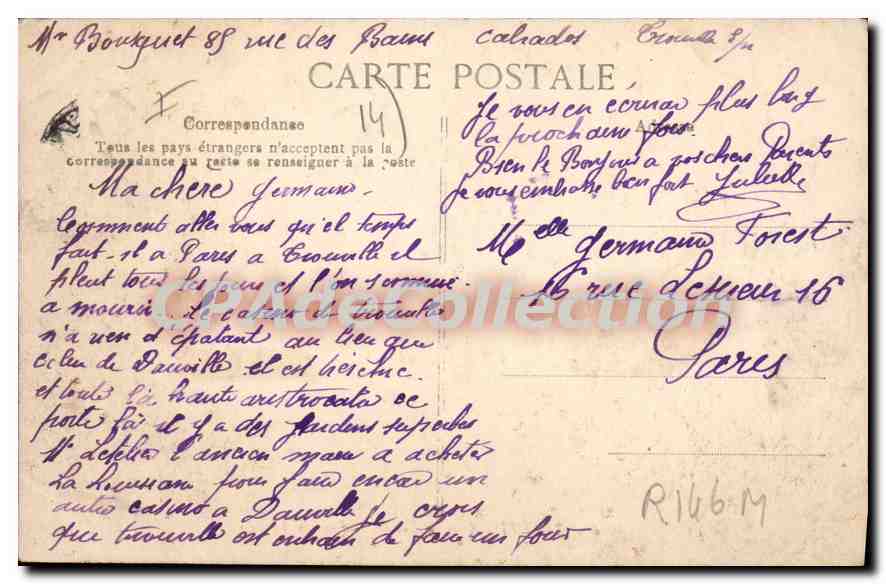 Mr Bouquet 85 rue des Bains Calvados Trouville s/m
CARTE POSTALE
14
Correspondance
Tous les pays étrangers n'acceptent pas la
correspondance au recto se renseigner à la poste
Adresse
Ma chère Germaine
comment aller vous quel temps
fait-il a Paris a Trouville il
pleut tous les jours et l'on
a mourir. Le casino de Trouville
n'a rien d'épatant au lieu que
celui de Dauville il est
et toute la haute aristrocatie ce
porte là il y a des jardins superbes
Mr l'ancien maire a acheter
La pour faire encor un
autre casino a Dauville je crois
que trouville est entrain de faire un four
Je vous en écrirai plus long
la prochaine fois.
Bien le Bonjour a vos chers Parents
Je vous embrasse bien fort Juliette
Melle Germaine Forest
16 rue Lesueur 16
Paris
CPAdeCollection
R146M